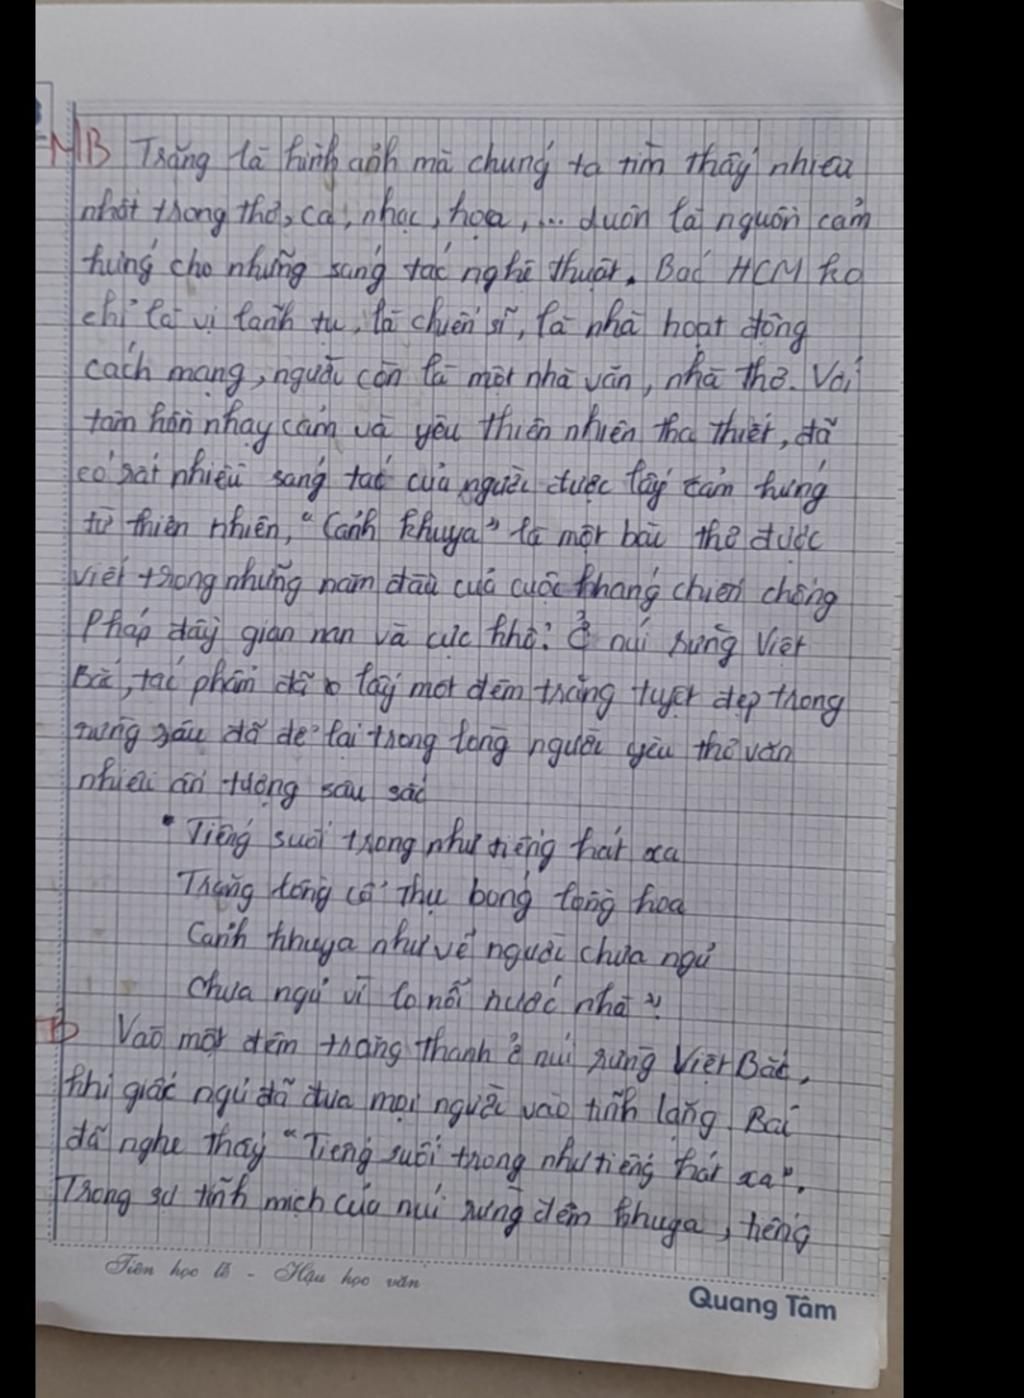 MB Trăng là hình ảnh mà chúng ta tìm thấy nhiều
nhất trong thơ, ca, nhạc, họa, ... luôn là nguồn cảm
hứng cho những sáng tác nghệ thuật. Bác HCM ko
chỉ là vị lãnh tụ, là chiến sĩ, là nhà hoạt động
cách mạng, người còn là một nhà văn, nhà thơ. Với
tâm hồn nhạy cảm và yêu thiên nhiên tha thiết, đã
có rất nhiều sáng tác của người được lấy cảm hứng
từ thiên nhiên, "Cảnh khuya" là một bài thơ được
viết trong những năm đầu của cuộc kháng chiến chống
Pháp đầy gian nan và cực khổ. Ở núi rừng Việt
Bắc, tác phẩm đã lấy một đêm trăng tuyệt đẹp trong
rừng sâu đã để lại trong lòng người yêu thơ văn
nhiều ấn tượng sâu sắc
"Tiếng suối trong như tiếng hát xa
Trăng lồng cổ thụ bóng lồng hoa
Cảnh khuya như vẽ người chưa ngủ
Chưa ngủ vì lo nỗi nước nhà".
Vào một đêm trăng thanh ở núi rừng Việt Bắc,
khi giấc ngủ đã đưa mọi người vào tĩnh lặng. Bác
đã nghe thấy "Tiếng suối trong như tiếng hát xa".
Trong sự tĩnh mịch của núi rừng đêm khuya, tiếng
Tiên học lễ - Hậu học văn
Quang Tâm